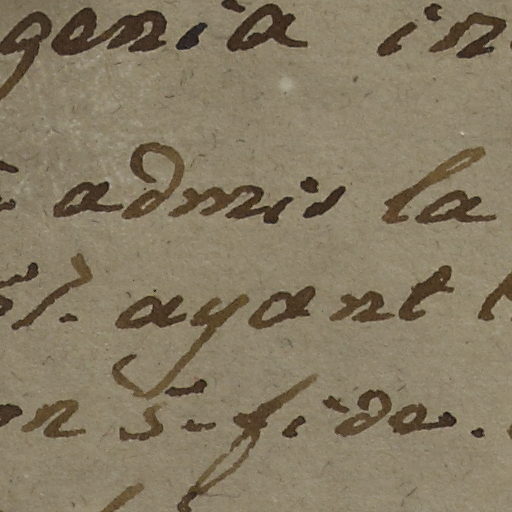 genia in
admis la
ayant
on S.- fide.